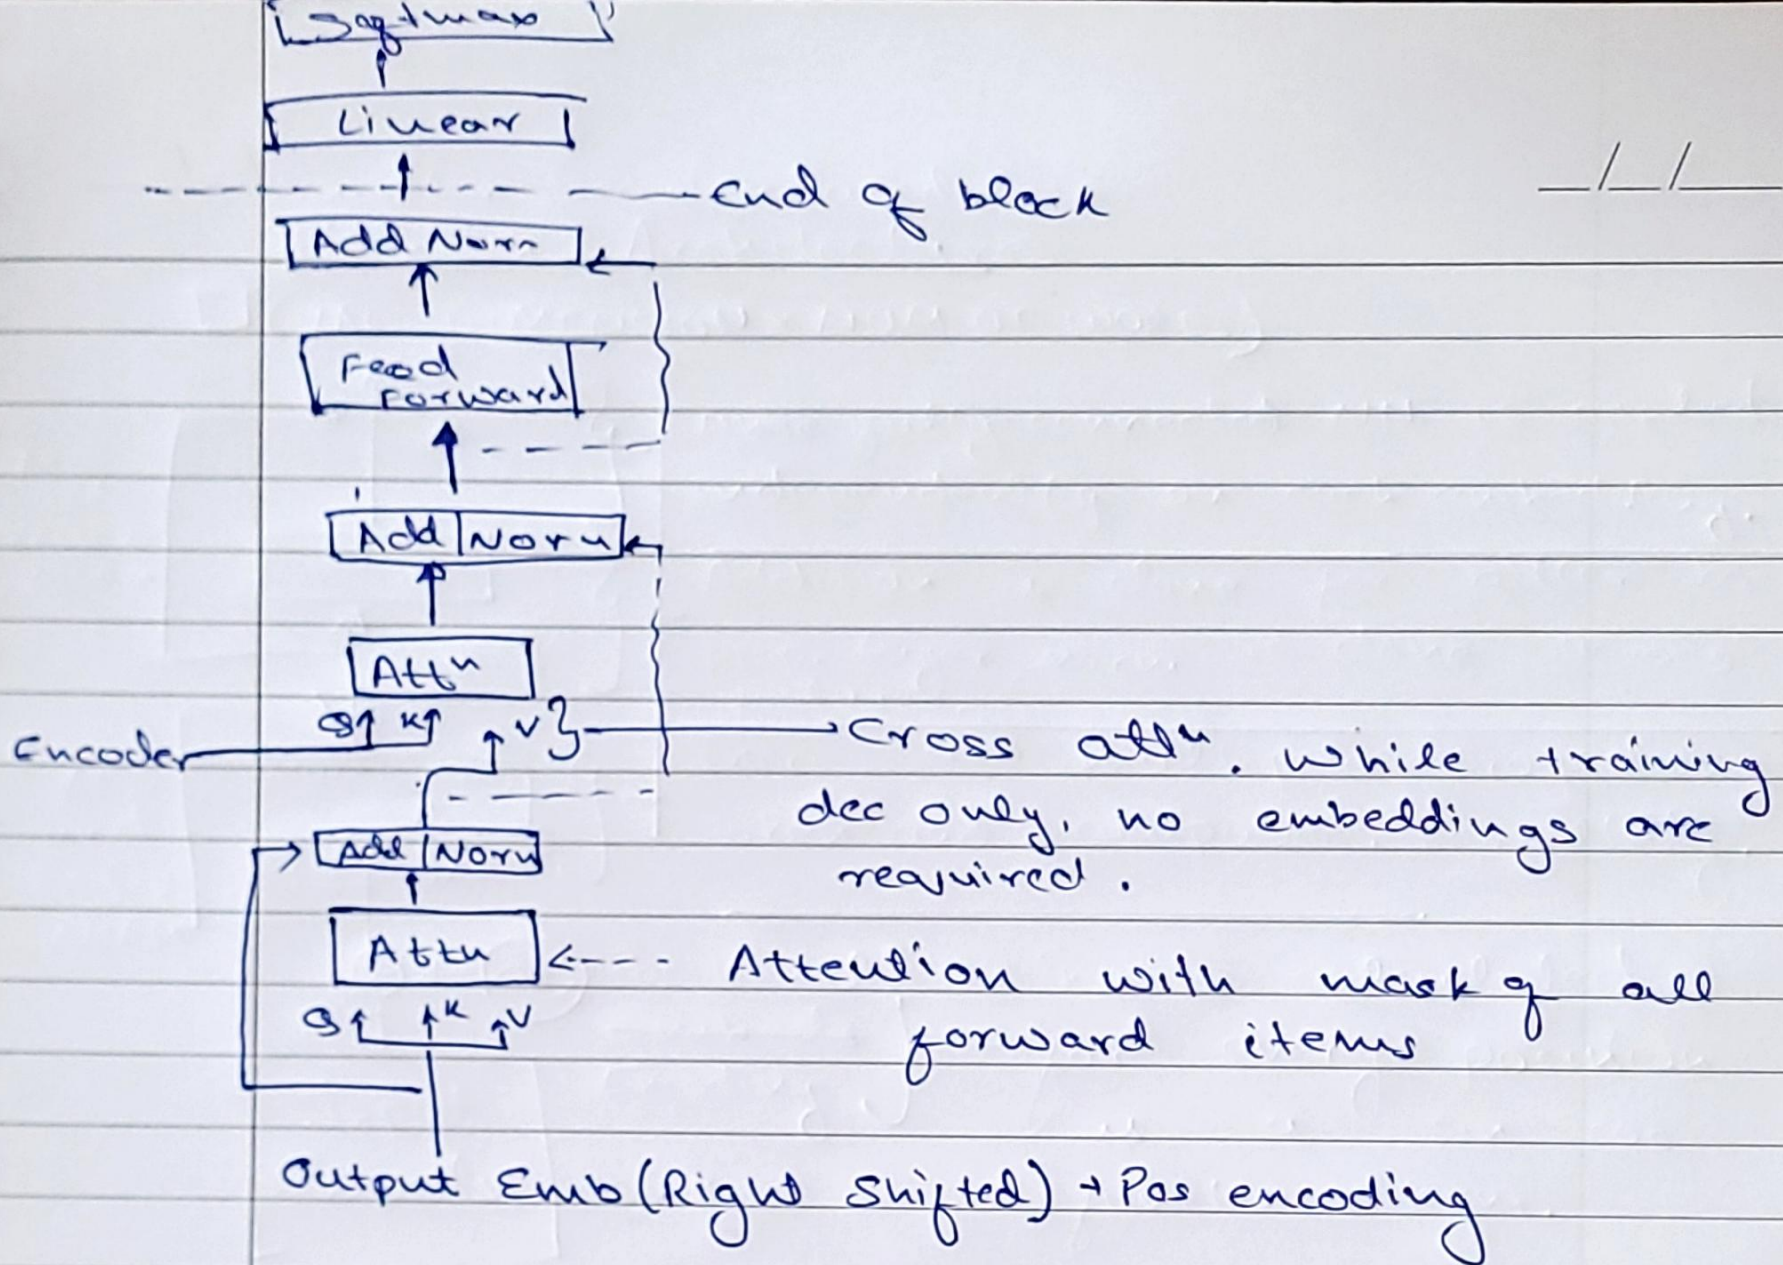 Softmax
Linear
End of block
Add Norm
Feed
Forward
Add Norm
Attn
Q K V
Encoder
Cross attn. While training
dec only, no embeddings are
required.
Add Norm
Attn
Attention with mask of all
forward items
Q K V
Output Emb (Right Shifted) + Pos encoding